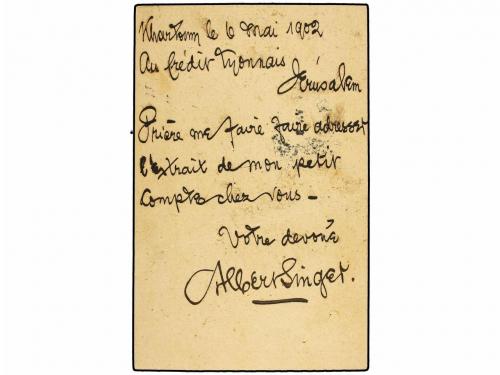 Khartoum le 6 Mai 1902
Au Crédit Lyonnais
Jérusalem
Prière me faire faire adresser
l'extrait de mon petit
Compte chez vous –
Votre devoué
Albert Singer.